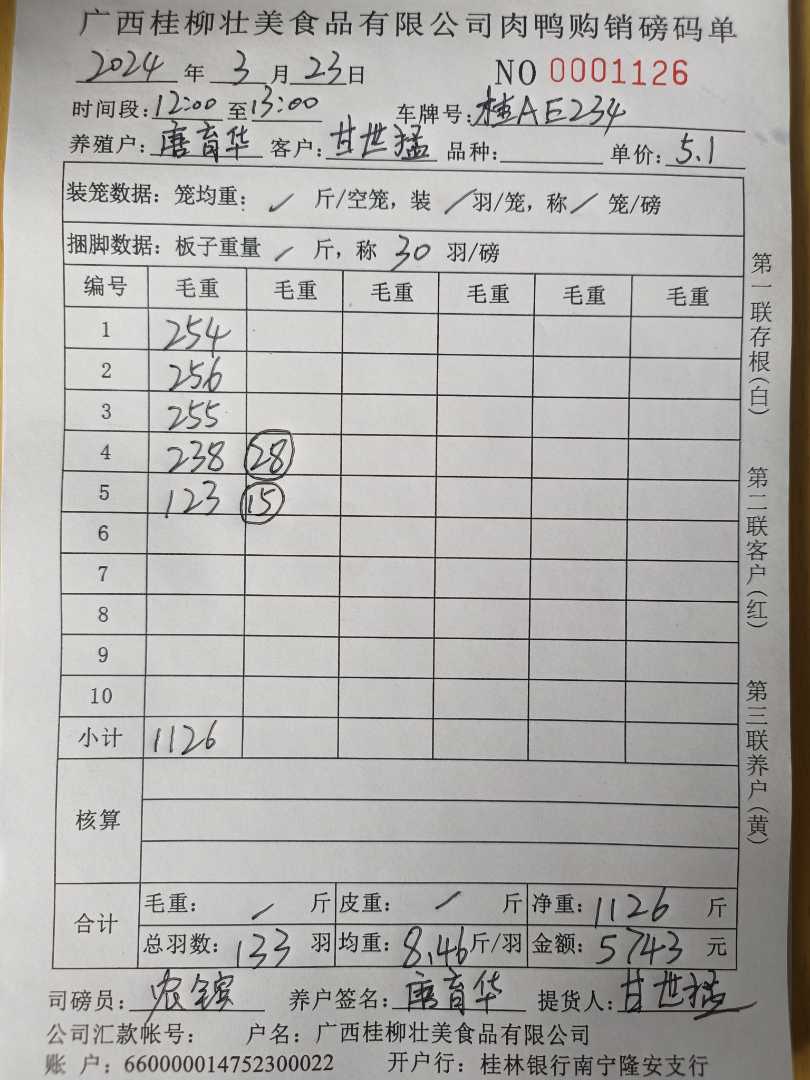 广西桂柳壮美食品有限公司肉鸭购销磅码单
2024年3月23日 NO 0001126
时间段:12:00至13:00 车牌号:桂AE234
养殖户:唐育华 客户:甘世猛 品种: 单价:5.1
装笼数据:笼均重:/斤/空笼,装/羽/笼,称/笼/磅
捆脚数据:板子重量/斤,称30羽/磅
编号 毛重 毛重 毛重 毛重 毛重 毛重
1 254
2 256
3 255
4 238 28
5 123 15
6
7
8
9
10
小计 1126
核算
合计 毛重:/斤 皮重:/斤 净重:1126斤
总羽数:133羽 均重:8.46斤/羽 金额:5743元
司磅员:农 养户签名:唐育华 提货人:甘世猛
公司汇款帐号: 户名:广西桂柳壮美食品有限公司
账户:660000014752300022 开户行:桂林银行南宁隆安支行
第一联存根(白)
第二联客户(红)
第三联养户(黄)